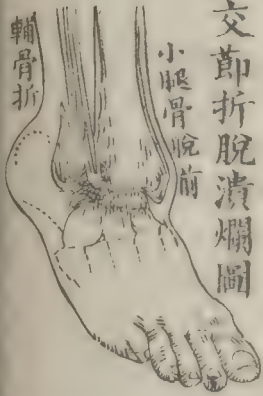 交節折脫潰爛圖
小腿骨脫前
輔骨折